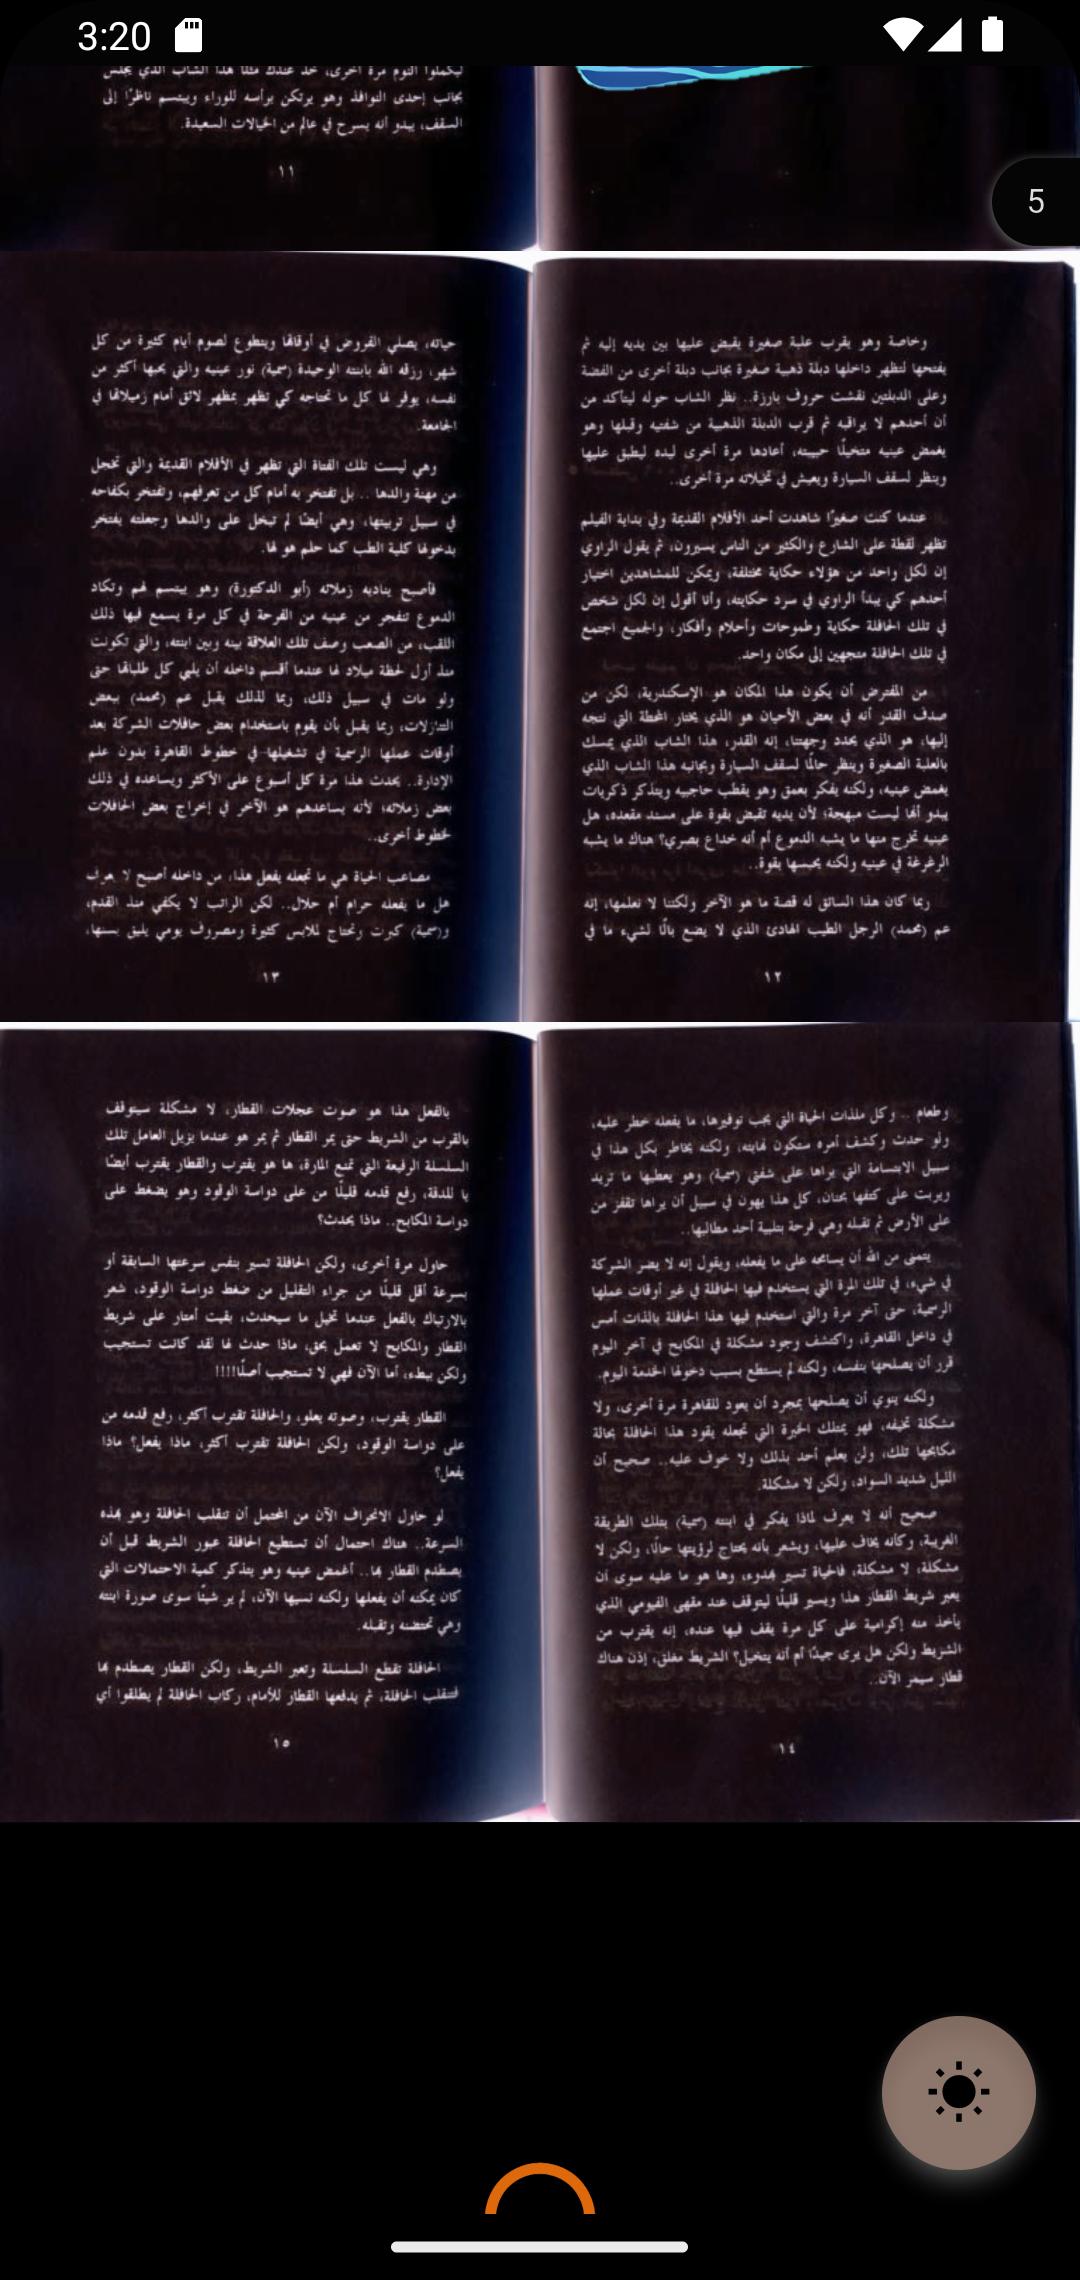 3:20
5
ليكملوا النوم مرة أخرى، خذ عندك مثلًا هذا الشاب الذي يجلس
بجانب إحدى النوافذ وهو يرتكن برأسه للوراء ويبتسم ناظرًا إلى
السقف، يبدو أنه يسرح في عالم من الخيالات السعيدة.
١١
وخاصة وهو يقرب علبة صغيرة يقبض عليها بين يديه إليه ثم
يفتحها لتظهر داخلها دبلة ذهبية صغيرة بجانب دبلة أخرى من الفضة
وعلى الدبلتين نقشت حروف بارزة.. نظر الشاب حوله ليتأكد من
أن أحدهم لا يراقبه ثم قرب الدبلة الذهبية من شفتيه وقبلها وهو
يغمض عينيه متخيلًا حبيبته، أعادها مرة أخرى ليده ليطبق عليها
وينظر لسقف السيارة ويعيش في تخيلاته مرة أخرى..
عندما كنت صغيرًا شاهدت أحد الأفلام القديمة وفي بداية الفيلم
تظهر لقطة على الشارع والكثير من الناس يسيرون، ثم يقول الراوي
إن لكل واحد من هؤلاء حكاية مختلفة، ويمكن للمشاهدين اختيار
أحدهم كي يبدأ الراوي في سرد حكايته، وأنا أقول إن لكل شخص
في تلك الحافلة حكاية وطموحات وأحلام وأفكار، والجميع اجتمع
في تلك الحافلة متجهين إلى مكان واحد.
من المفترض أن يكون هذا المكان هو الإسكندرية، لكن من
صدف القدر أنه في بعض الأحيان هو الذي يختار المحطة التي نتجه
إليها، هو الذي يحدد وجهتنا، إنه القدر، هذا الشاب الذي يمسك
بالعلبة الصغيرة وينظر حالمًا لسقف السيارة وبجانبه هذا الشاب الذي
يغمض عينيه، ولكنه يفكر بعمق وهو يقطب حاجبيه ويتذكر ذكريات
يبدو أنها ليست مبهجة؛ لأن يديه تقبض بقوة على مسند مقعده، هل
عينيه تخرج منها ما يشبه الدموع أم أنه خداع بصري؟ هناك ما يشبه
الرغرغة في عينيه ولكنه يحبسها بقوة..
ربما كان هذا السائق له قصة ما هو الآخر ولكننا لا نعلمها، إنه
عم (محمد) الرجل الطيب الهادئ الذي لا يضع بالًا لشيء ما في
١٢
حياته، يصلي الفروض في أوقاتها ويتطوع لصوم أيام كثيرة من كل
شهر، رزقه الله بابنته الوحيدة (سمية) نور عينيه والتي يحبها أكثر من
نفسه، يوفر لها كل ما تحتاجه كي تظهر بمظهر لائق أمام زميلاتها في
الجامعة.
وهي ليست تلك الفتاة التي تظهر في الأفلام القديمة والتي تخجل
من مهنة والدها .. بل تفتخر به أمام كل من تعرفهم، وتفتخر بكفاحه
في سبيل تربيتها، وهي أيضًا لم تبخل على والدها وجعلته يفتخر
بدخولها كلية الطب كما حلم هو لها.
فأصبح يناديه زملائه (أبو الدكتورة) وهو يبتسم لهم وتكاد
الدموع تنفجر من عينيه من الفرحة في كل مرة يسمع فيها ذلك
اللقب، من الصعب وصف تلك العلاقة بينه وبين ابنته، والتي تكونت
منذ أول لحظة ميلاد لها عندما أقسم داخله أن يلبي كل طلباتها حتى
ولو مات في سبيل ذلك، ربما لذلك يقبل عم (محمد) ببعض
التنازلات، ربما يقبل بأن يقوم باستخدام بعض حافلات الشركة بعد
أوقات عملها الرسمية في تشغيلها في خطوط القاهرة بدون علم
الإدارة.. يحدث هذا مرة كل أسبوع على الأكثر ويساعده في ذلك
بعض زملائه؛ لأنه يساعدهم هو الآخر في إخراج بعض الحافلات
لخطوط أخرى..
مصاعب الحياة هي ما تجعله يفعل هذا، من داخله أصبح لا يعرف
هل ما يفعله حرام أم حلال.. لكن الراتب لا يكفي منذ القدم،
و(سمية) كبرت وتحتاج لملابس كثيرة ومصروف يومي يليق بسنها،
١٣
وطعام .. وكل ملذات الحياة التي يجب توفيرها، ما يفعله خطر عليه،
ولو حدث وكشف أمره ستكون نهايته، ولكنه يخاطر بكل هذا في
سبيل الابتسامة التي يراها على شفتي (سمية) وهو يعطيها ما تريد
ويربت على كتفها بحنان، كل هذا يهون في سبيل أن يراها تقفز من
على الأرض ثم تقبله وهي فرحة بتلبية أحد مطالبها..
يتمنى من الله أن يسامحه على ما يفعله، ويقول إنه لا يضر الشركة
في شيء، في تلك المرة التي يستخدم فيها الحافلة في غير أوقات عملها
الرسمية، حتى آخر مرة والتي استخدم فيها هذا الحافلة بالذات أمس
في داخل القاهرة، واكتشف وجود مشكلة في المكابح في آخر اليوم
قرر أن يصلحها بنفسه، ولكنه لم يستطع بسبب دخولها الخدمة اليوم.
ولكنه ينوي أن يصلحها بمجرد أن يعود للقاهرة مرة أخرى، ولا
مشكلة تخيفه، فهو يمتلك الخبرة التي تجعله يقود هذا الحافلة بحالة
مكابحها تلك، ولن يعلم أحد بذلك ولا خوف عليه.. صحيح أن
الليل شديد السواد، ولكن لا مشكلة.
صحيح أنه لا يعرف لماذا يفكر في ابنته (سمية) بتلك الطريقة
الغريبة، وكأنه يخاف عليها، ويشعر بأنه يحتاج لرؤيتها حالًا، ولكن لا
مشكلة، لا مشكلة، فالحياة تسير بهدوء، وها هو ما عليه سوى أن
يعبر شريط القطار هذا ويسير قليلًا ليتوقف عند مقهى الفيومي الذي
يأخذ منه إكرامية على كل مرة يقف فيها عنده، إنه يقترب من
الشريط ولكن هل يرى جيدًا أم أنه يتخيل؟ الشريط مغلق، إذن هناك
قطار سيمر الآن..
١٤
بالفعل هذا هو صوت عجلات القطار، لا مشكلة سيتوقف
بالقرب من الشريط حتى يمر القطار ثم يمر هو عندما يزيل العامل تلك
السلسلة الرفيعة التي تمنع المارة، ها هو يقترب والقطار يقترب أيضًا
يا للدقة، رفع قدمه قليلًا من على دواسة الوقود وهو يضغط على
دواسة المكابح.. ماذا يحدث؟
حاول مرة أخرى، ولكن الحافلة تسير بنفس سرعتها السابقة أو
بسرعة أقل قليلًا من جراء التقليل من ضغط دواسة الوقود، شعر
بالارتباك بالفعل عندما تخيل ما سيحدث، بقيت أمتار على شريط
القطار والمكابح لا تعمل بحق، ماذا حدث لها لقد كانت تستجيب
ولكن ببطء، أما الآن فهي لا تستجيب أصلًا!!!!
القطار يقترب، وصوته يعلو، والحافلة تقترب أكثر، رفع قدمه من
على دواسة الوقود، ولكن الحافلة تقترب أكثر، ماذا يفعل؟ ماذا
يفعل؟
لو حاول الانحراف الآن من المحتمل أن تنقلب الحافلة وهو بهذه
السرعة.. هناك احتمال أن تستطيع الحافلة عبور الشريط قبل أن
يصطدم القطار بها.. أغمض عينيه وهو يتذكر كمية الاحتمالات التي
كان يمكنه أن يفعلها ولكنه نسيها الآن، لم ير شيئًا سوى صورة ابنته
وهي تحتضنه وتقبله.
الحافلة تقطع السلسلة وتعبر الشريط، ولكن القطار يصطدم بها
فتنقلب الحافلة، ثم يدفعها القطار للأمام، ركاب الحافلة لم يطلقوا أي
١٥